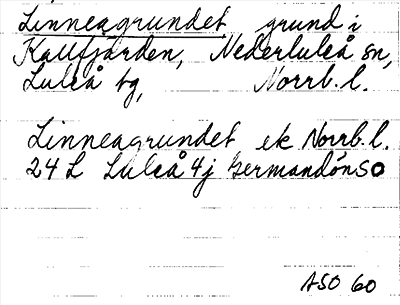 Linneagrundet grund i
Kallfjärden, Nederluleå sn,
Luleå tg, Norrb. l.
Linneagrundet ek Norrb. l.
24 L Luleå 4j Germandön SO
ASO 60